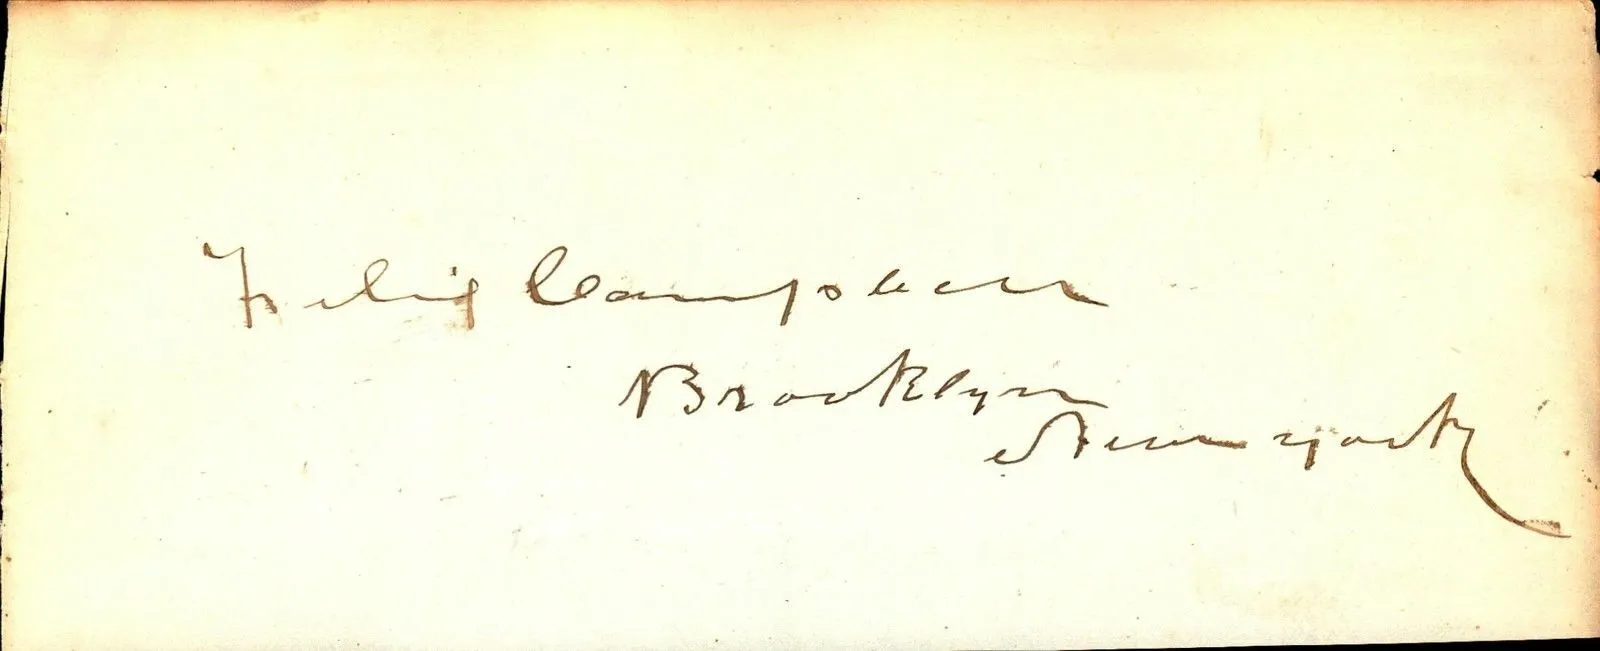 Felix Campbell
Brooklyn
New York